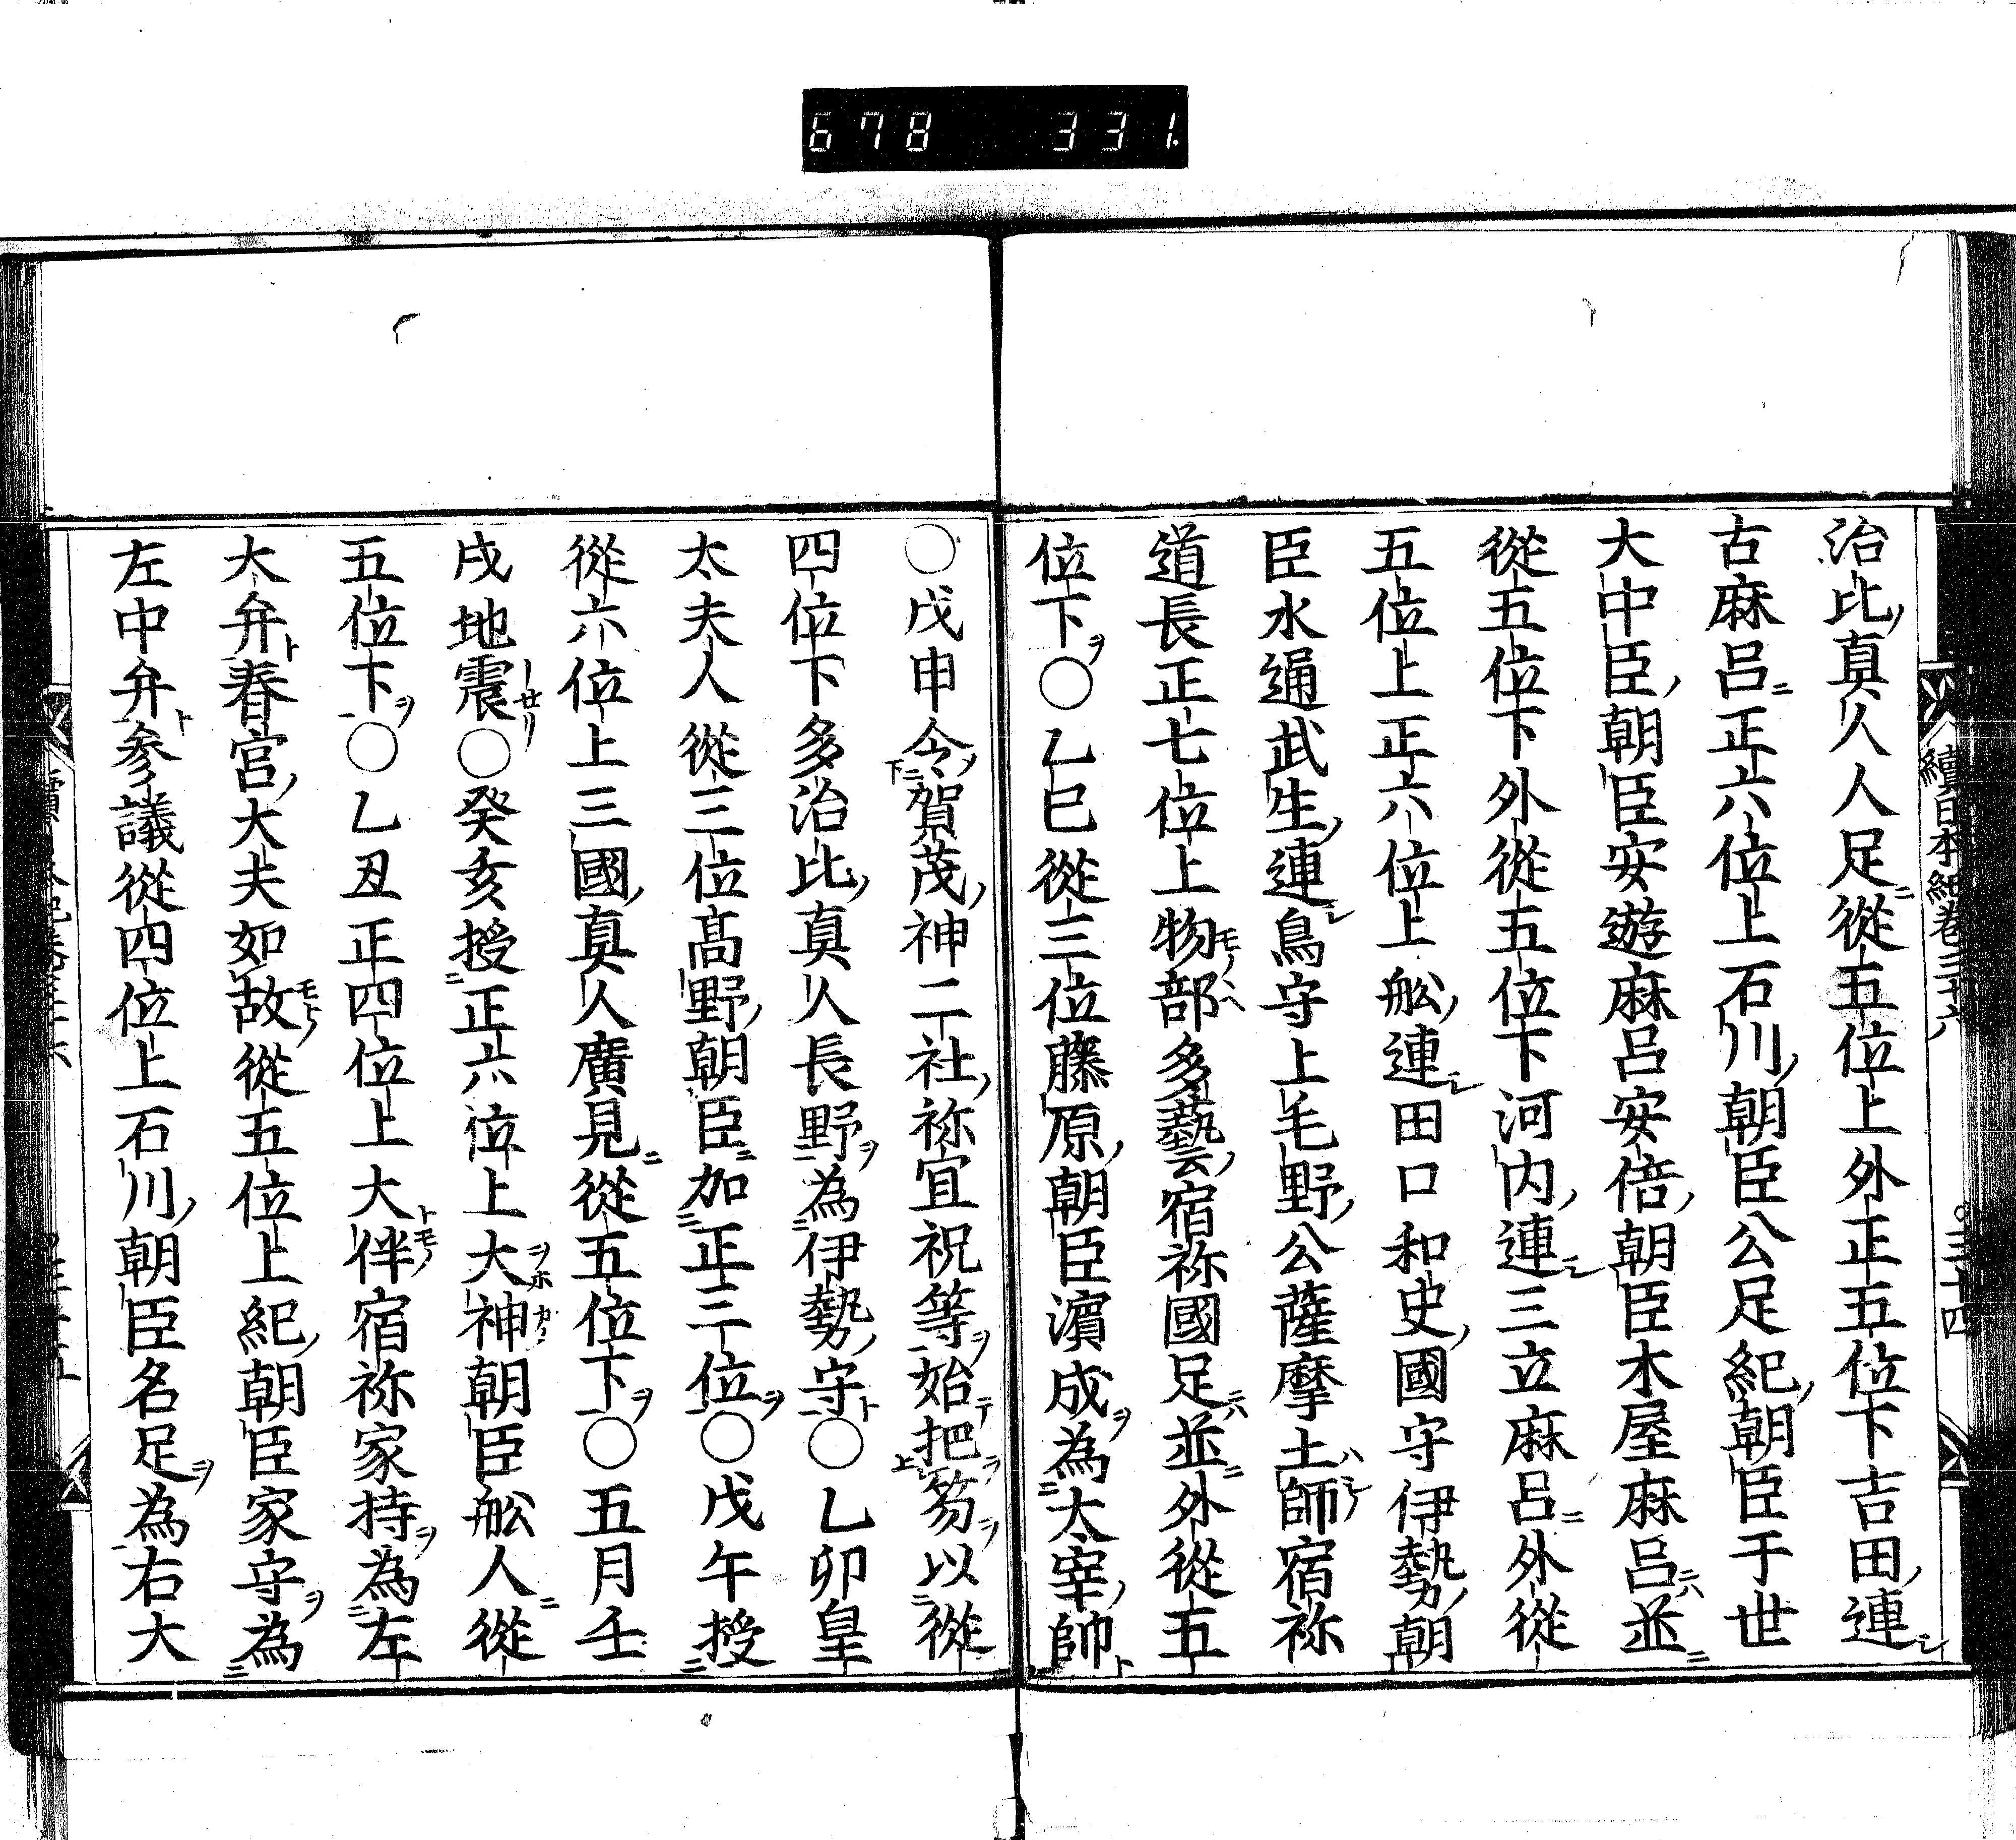 678 331
治比真人人足從五位上外正五位下吉田連
古麻呂正六位上石川朝臣公足紀朝臣于世
大中臣朝臣安遊麻呂安倍朝臣木屋麻呂並
從五位下外從五位下河内連三立麻呂外從
五位上正六位上舩連田口和史國守伊勢朝
臣水通武生連鳥守上毛野公薩摩土師宿祢
道長正七位上物部多藝宿祢國足並外從五
位下○乙巳從三位藤原朝臣濵成為太宰帥
○戊申令賀茂神二社祢宜祝等始把笏以從
四位下多治比真人長野為伊勢守○乙卯皇
太夫人從三位髙野朝臣加正三位○戊午授
從六位上三國真人廣見從五位下○五月壬
戌地震○癸亥授正六位上大神朝臣舩人從
五位下○乙丑正四位上大伴宿祢家持為左
大弁春宮大夫如故從五位上紀朝臣家守為
左中弁参議從四位上石川朝臣名足為右大
續日本紀巻三十六
○三十四